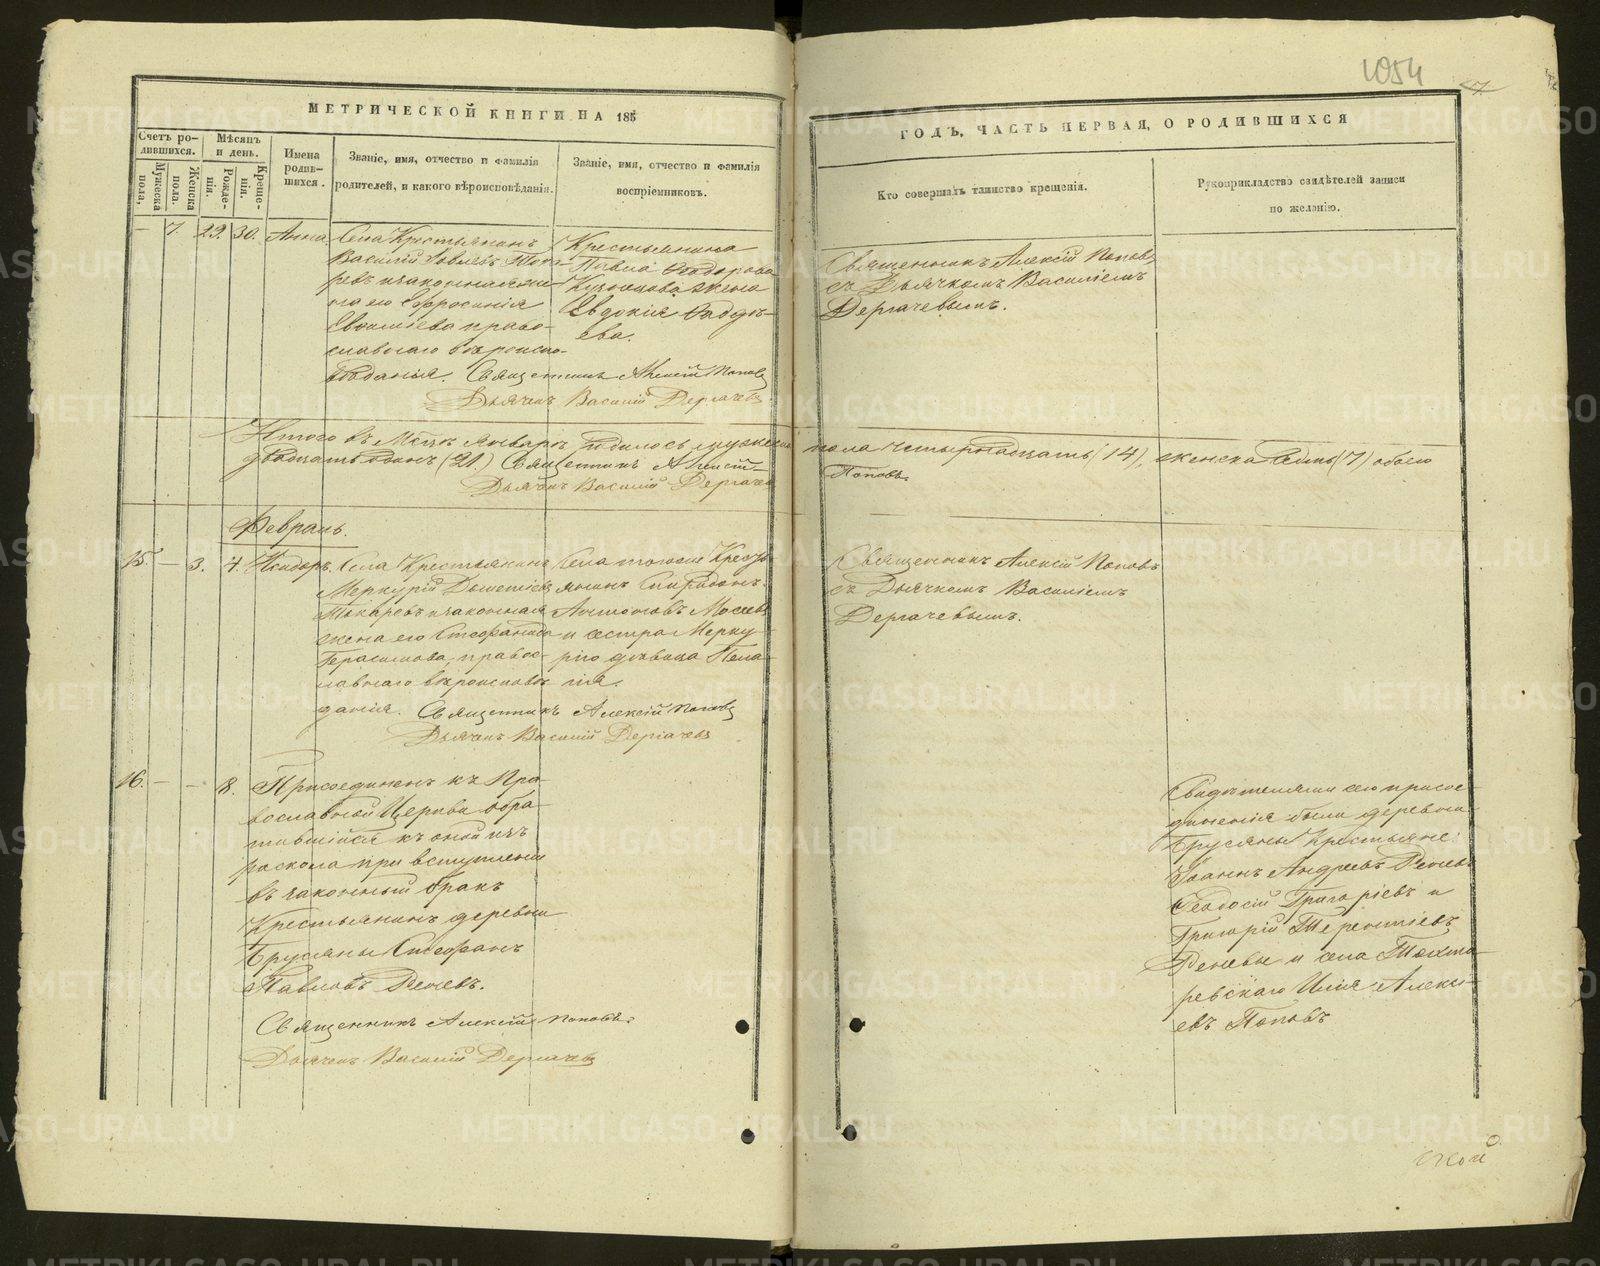 1054
МЕТРИЧЕСКОЙ КНИГИ НА 185
ГОДЪ, ЧАСТЬ ПЕРВАЯ, О РОДИВШИХСЯ
Счетъ ро-
дившихся.
Мужеска пола,
Женска пола.
Мѣсяцъ
и день.
Рожде-
нія.
Креще-
нія.
Имена
родив-
шихся.
Званіе, имя, отчество и фамилія
родителей, и какого вѣроисповѣданія.
Званіе, имя, отчество и фамилія
воспріемниковъ.
Кто совершалъ таинство крещенія.
Рукоприкладство свидѣтелей записи
по желанію.
— 7. 29. 30. Анна
Села Крестьянинъ
Василій Тока-
ревъ и законная же-
на его Евфросинія
право-
славнаго вѣроиспо-
вѣданія.
Крестьянина
Павла Ѳеодорова
Кузнецова жена
Евдокія Ѳаддѣ-
ева.
Священникъ Алексій Поповъ
Дьячекъ Василій Дергачевъ
Священникъ Алексій Поповъ
съ Дьячкомъ Василіемъ
Дергачевымъ.
Итого въ Мсцѣ Январѣ родилось мужеска пола четырнадцать (14), женска седмь (7) обоего
двадцать одинъ (21.) Священникъ Алексій Поповъ.
Дьячекъ Василій Дергачевъ
Февраль.
15. — 3. 4. Исидоръ.
Села Крестьянинъ
Меркурій Дометіевъ
Токаревъ и законная
жена его Стефанида
Герасимова, правос-
лавнаго вѣроисповѣ-
данія.
Села тогоже Кресть-
янинъ Спиридонъ
Антоновъ
и сестра Мерку-
рію дѣвица Пела-
гія.
Священникъ Алексій Поповъ
Дьячекъ Василій Дергачевъ
Священникъ Алексій Поповъ
съ Дьячкомъ Василіемъ
Дергачевымъ.
16. — — 8.
Присоединенъ къ Пра-
вославной Церкви обра-
тившійся къ оной изъ
раскола при вступленіи
въ законный бракъ
Крестьянинъ деревни
Брусяны Стефанъ
Павловъ Реневъ.
Священникъ Алексій Поповъ.
Дьячекъ Василій Дергачевъ
Свидѣтелями сего присое-
диненія были деревни
Брусяны Крестьяне:
Іоаннъ Андреевъ Реневъ
Ѳеодосій Григоріевъ и
Григорій Терентіевъ
Реневы и села
Илія Алексі-
евъ Поповъ
METRIKI.GASO-URAL.RU